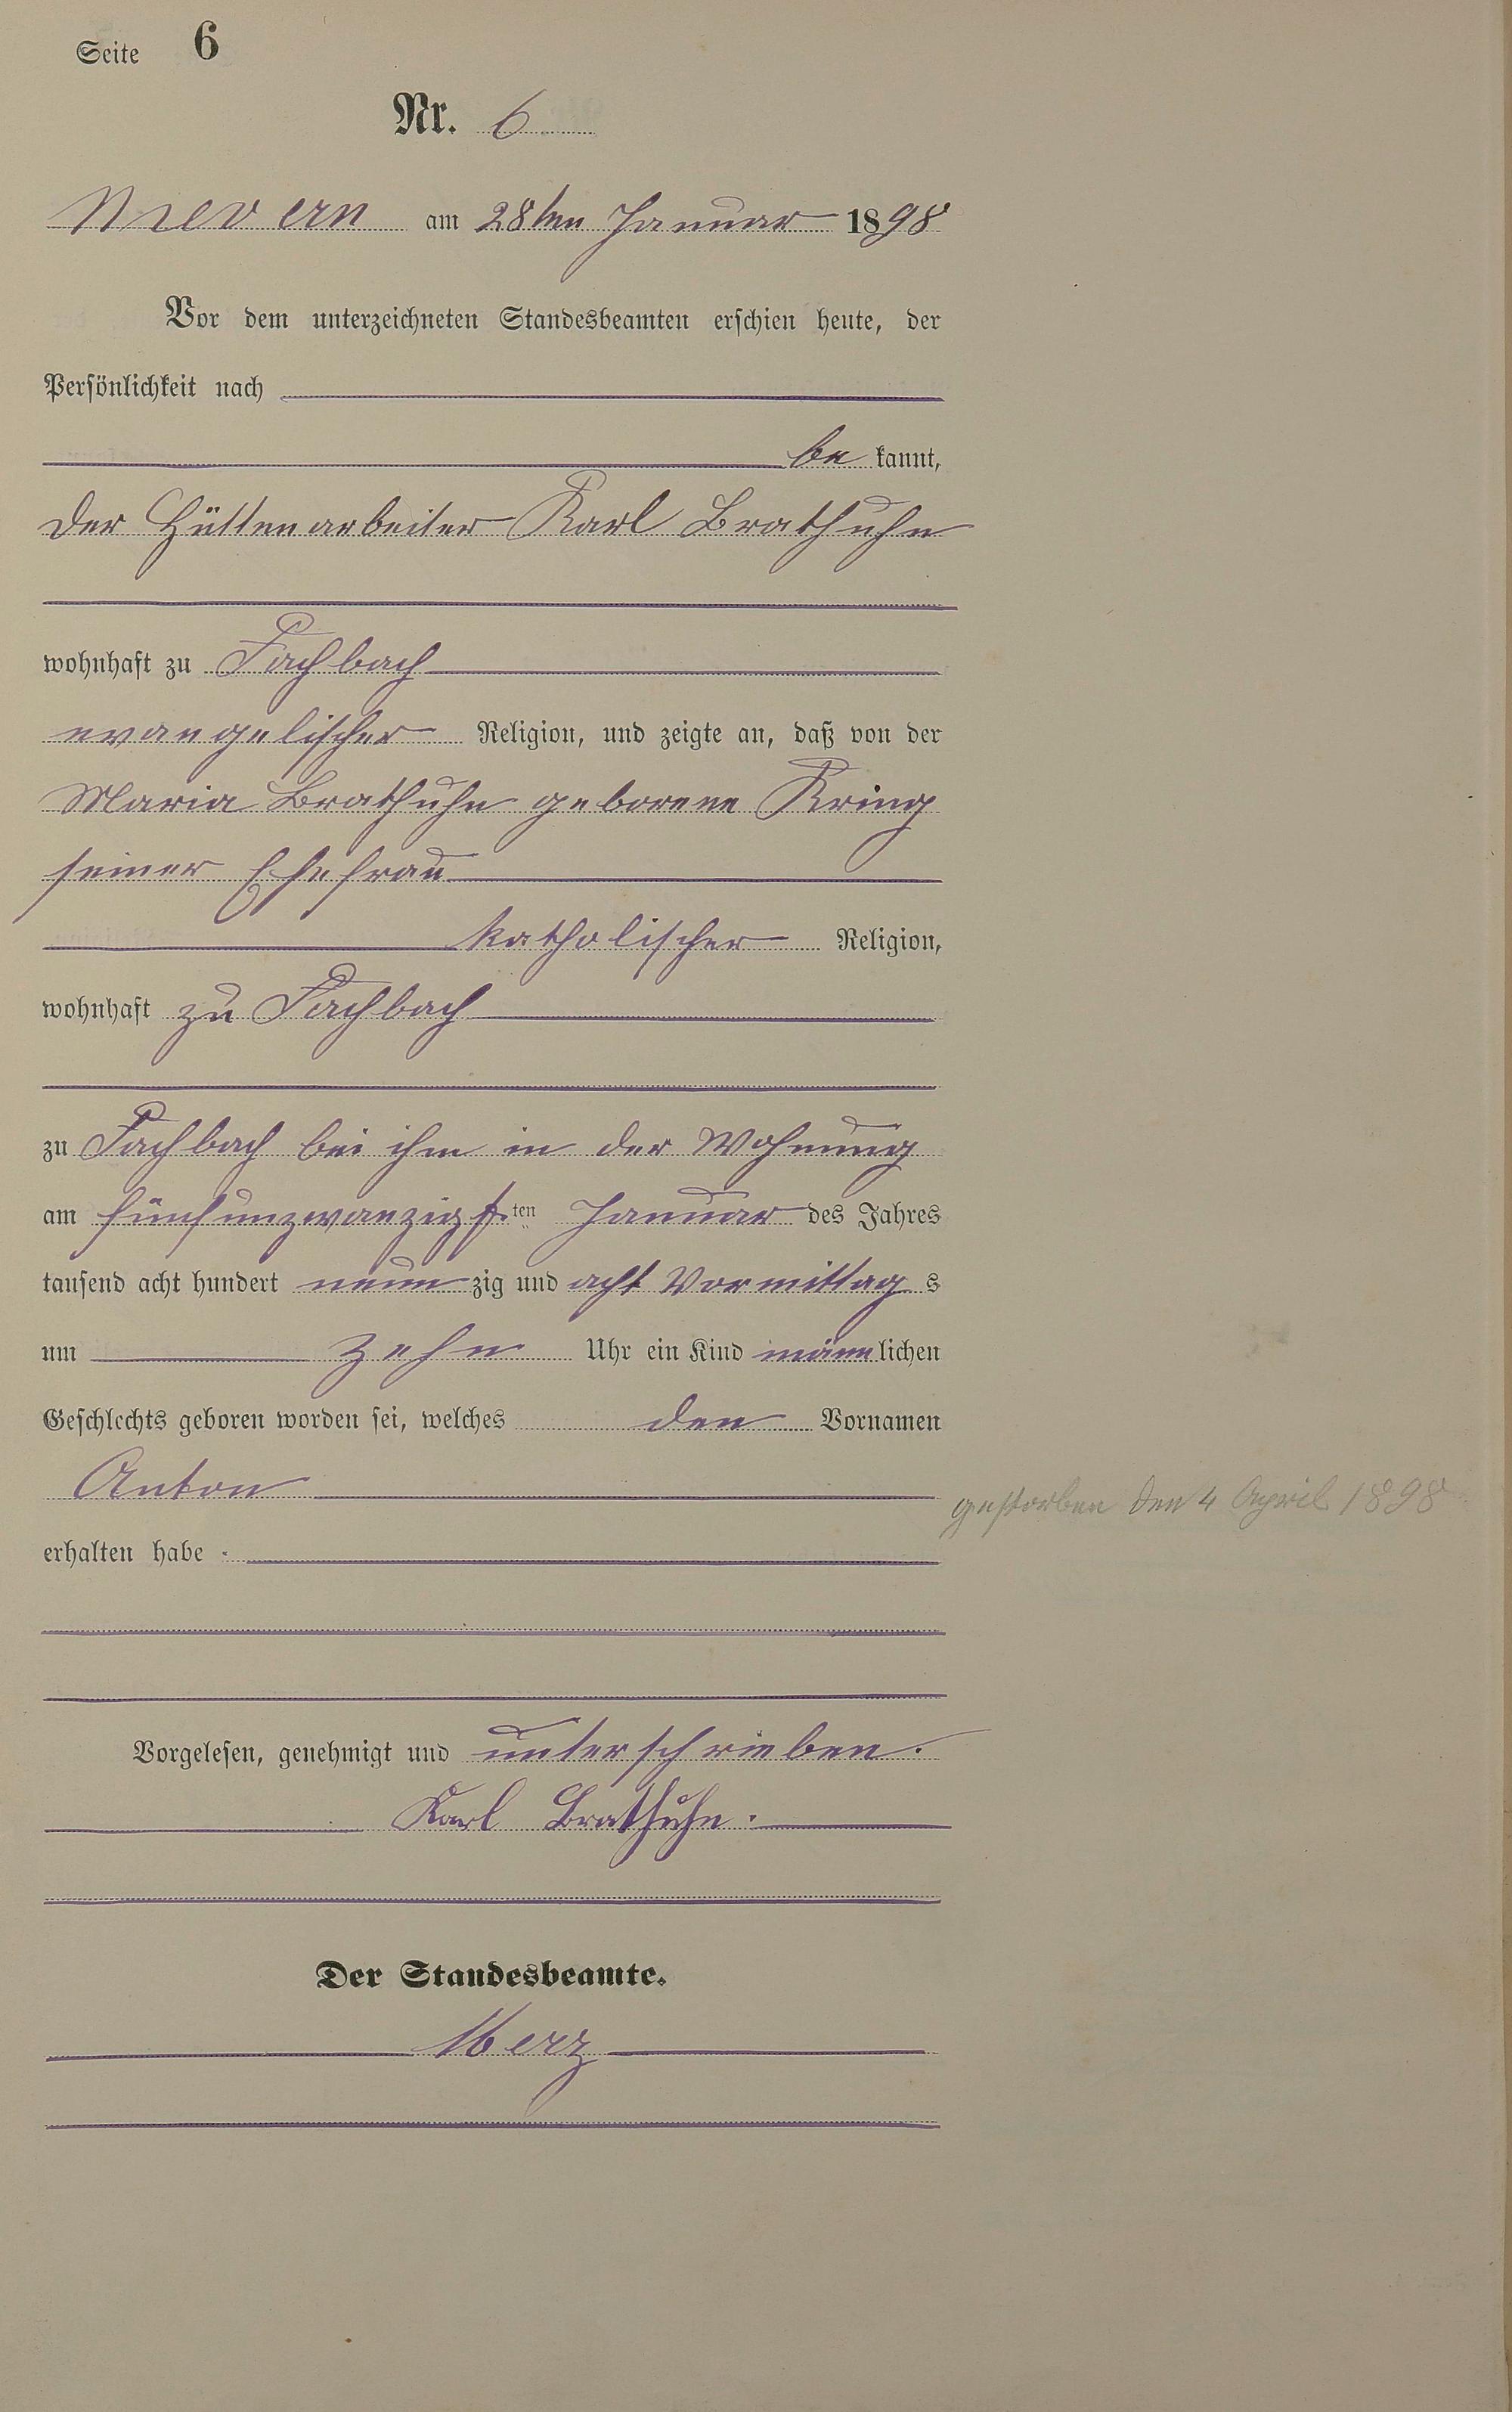 Seite 6
Nr. 6
Nievern am 28ten Januar 1898
Vor dem unterzeichneten Standesbeamten erschien heute, der
Persönlichkeit nach
be kannt,
der Hüttenarbeiter Karl Brathuhn
wohnhaft zu Fachbach
evangelischer Religion, und zeigte an, daß von der
Maria Brathuhn geborene Kring
seiner Ehefrau
katholischer Religion,
wohnhaft zu Fachbach
zu Fachbach bei ihm in der Wohnung
am fünfunzwanzigsten Januar des Jahres
tausend acht hundert neunzig und acht Vormittags
um zehn Uhr ein Kind männlichen
Geschlechts geboren worden sei, welches den Vornamen
Anton
gestorben den 4 April 1898
erhalten habe.
Vorgelesen, genehmigt und unterschrieben.
Karl Brathuhn.
Der Standesbeamte.
Merz